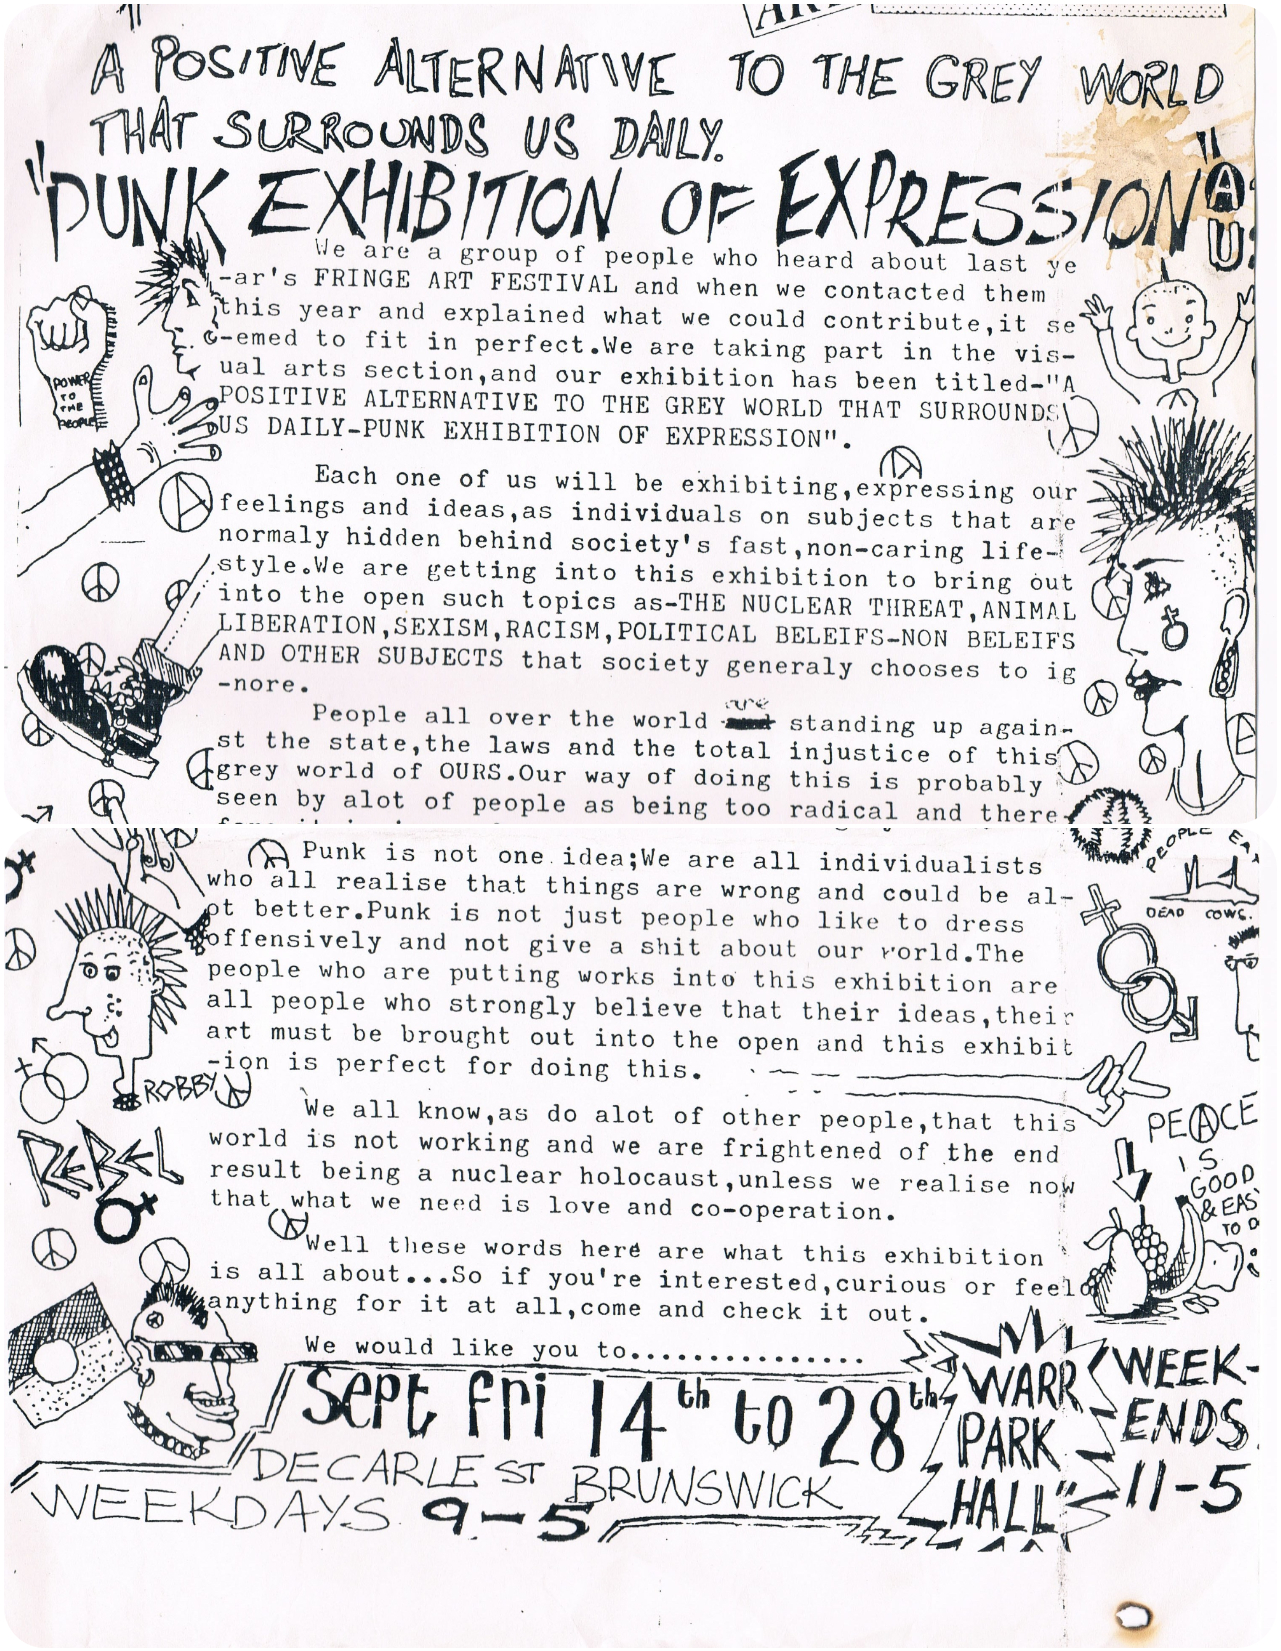 A POSITIVE ALTERNATIVE TO THE GREY WORLD
THAT SURROUNDS US DAILY.
"PUNK EXHIBITION OF EXPRESSION"
We are a group of people who heard about last ye
-ar's FRINGE ART FESTIVAL and when we contacted them
this year and explained what we could contribute,it se
-emed to fit in perfect.We are taking part in the vis-
ual arts section,and our exhibition has been titled-"A
POSITIVE ALTERNATIVE TO THE GREY WORLD THAT SURROUNDS
US DAILY-PUNK EXHIBITION OF EXPRESSION".
POWER
TO
THE
PEOPLE
Each one of us will be exhibiting,expressing our
feelings and ideas,as individuals on subjects that are
normaly hidden behind society's fast,non-caring life-
style.We are getting into this exhibition to bring out
into the open such topics as-THE NUCLEAR THREAT,ANIMAL
LIBERATION,SEXISM,RACISM,POLITICAL BELEIFS-NON BELEIFS
AND OTHER SUBJECTS that society generaly chooses to ig
-nore.
People all over the world are standing up again-
st the state,the laws and the total injustice of this
grey world of OURS.Our way of doing this is probably
seen by alot of people as being too radical and there-
PEOPLE EAT
DEAD COWS.
Punk is not one idea;We are all individualists
who all realise that things are wrong and could be al-
ot better.Punk is not just people who like to dress
offensively and not give a shit about our world.The
people who are putting works into this exhibition are
all people who strongly believe that their ideas,their
art must be brought out into the open and this exhibit
-ion is perfect for doing this.
ROBBY
We all know,as do alot of other people,that this
world is not working and we are frightened of the end
result being a nuclear holocaust,unless we realise now
that what we need is love and co-operation.
REBEL
PEACE
IS
GOOD
& EAS
TO D
Well these words here are what this exhibition
is all about...So if you're interested,curious or feel
anything for it at all,come and check it out.
We would like you to...............
Sept Fri 14th to 28th
WARR
PARK
HALL"
WEEK-
ENDS
11-5
DECARLE ST BRUNSWICK
WEEKDAYS 9-5